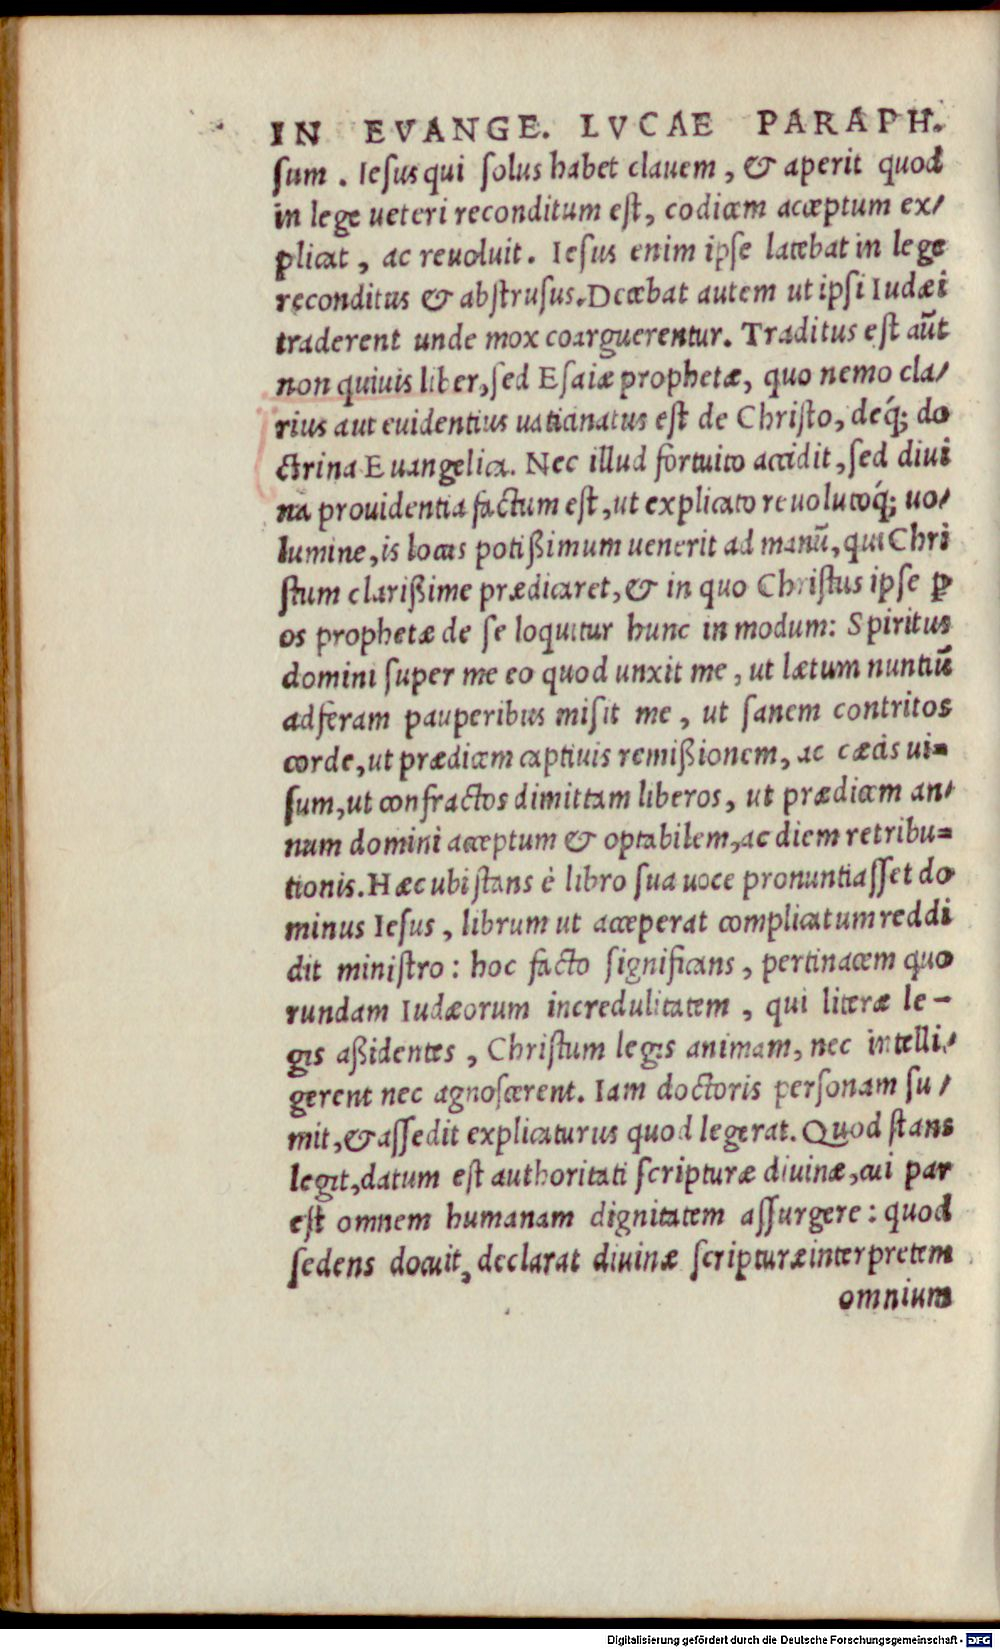 IN EVANGE. LVCAE PARAPH.
ſum . Ieſus qui ſolus habet clauem , & aperit quod
in lege ueteri reconditum eſt, codicem acceptum ex/
plicat , ac reuoluit . Ieſus enim ipſe latebat in lege
reconditus & abſtruſus. Decebat autem ut ipſi Iudæi
traderent unde mox coarguerentur. Traditus eſt aūt
non quiuis liber, ſed Eſaiæ prophetæ, quo nemo cla/
rius aut euidentius uaticinatus eſt de Chriſto, deq́; do
ctrina Euangelica. Nec illud fortuito accidit, ſed diui
na prouidentia factum eſt, ut explicato reuolutoq́; uo/
lumine, is locus potißimum uenerit ad manū, qui Chri
ſtum clarißime prædicaret, & in quo Chriſtus ipſe ꝑ
os prophetæ de ſe loquitur hunc in modum: Spiritus
domini ſuper me eo quod unxit me , ut lætum nuntiū
adferam pauperibus miſit me , ut ſanem contritos
corde, ut prædicem captiuis remißionem, ac cæcis ui=
ſum, ut confractos dimittam liberos, ut prædicem an/
num domini acceptum & optabilem, ac diem retribu=
tionis. Hæc ubi ſtans è libro ſua uoce pronuntiaſſet do
minus Ieſus , librum ut acceperat complicatum reddi
dit miniſtro : hoc facto ſignificans , pertinacem quo
rundam Iudæorum incredulitatem , qui literæ le-
gis aßidentes , Chriſtum legis animam, nec intelli/
gerent nec agnoſcerent. Iam doctoris perſonam ſu/
mit, & aſſedit explicaturus quod legerat. Quod ſtans
legit, datum eſt authoritati ſcripturæ diuinæ, cui par
eſt omnem humanam dignitatem aſſurgere : quod
ſedens docuit, declarat diuinæ ſcripturæ interpretem
omnium
Digitalisierung gefördert durch die Deutsche Forschungsgemeinschaft - DFG